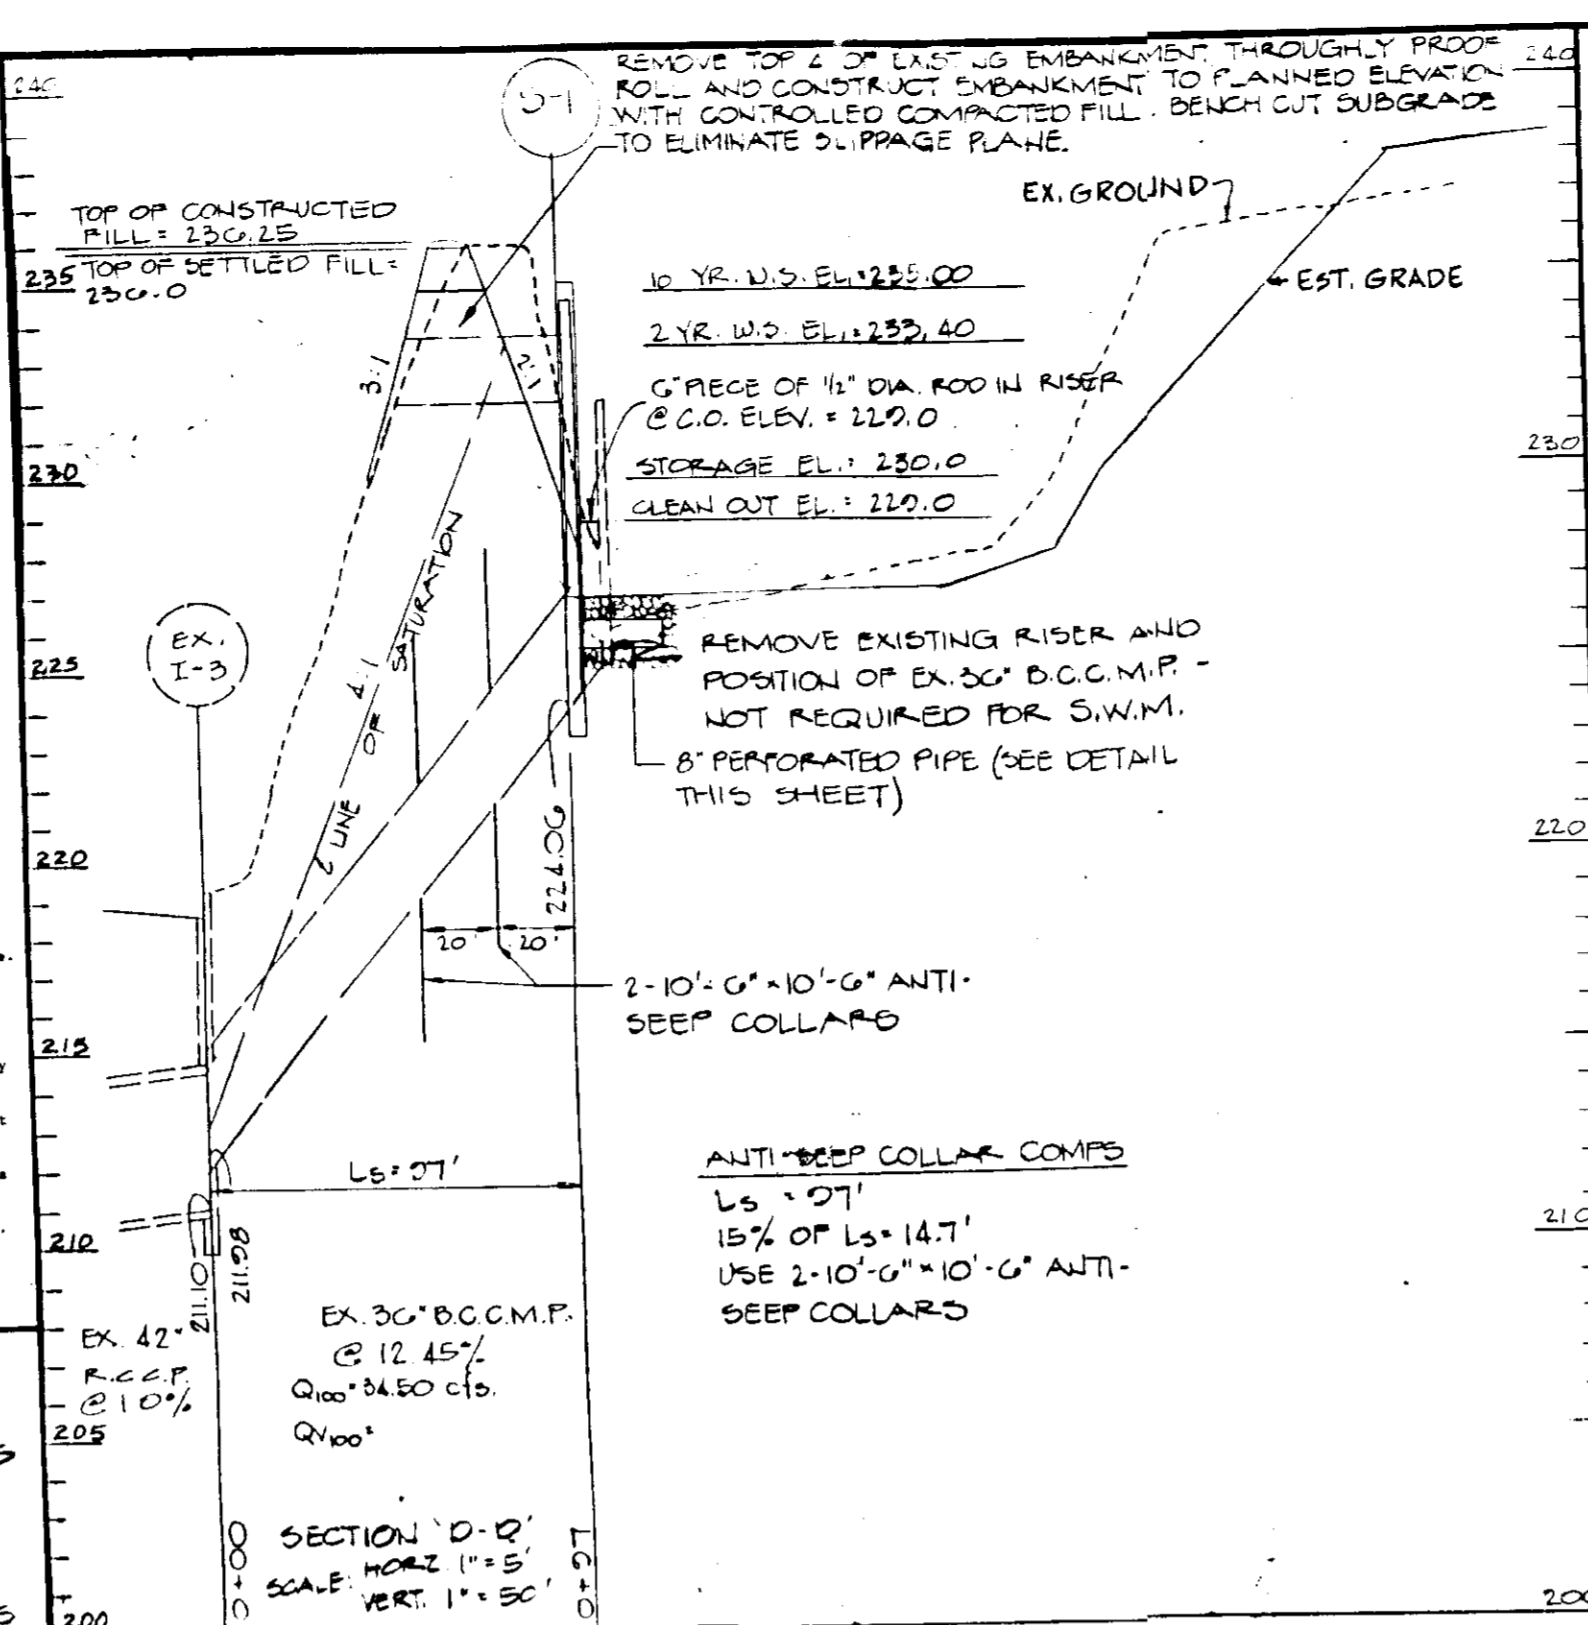 REMOVE TOP 2' OF EXISTING EMBANKMENT, THROUGHLY PROOF
ROLL AND CONSTRUCT EMBANKMENT TO PLANNED ELEVATION
WITH CONTROLLED COMPACTED FILL. BENCH CUT SUBGRADE
TO ELIMINATE SLIPPAGE PLANE.
240
240
S-1
EX. GROUND
TOP OF CONSTRUCTED
FILL = 236.25
TOP OF SETTLED FILL =
236.0
235
10 YR. W.S. EL.: 235.00
EST. GRADE
2 YR. W.S. EL.: 233.40
3:1
2:1
6" PIECE OF 1/2" DIA. ROD IN RISER
@ C.O. ELEV. = 229.0
230
230
STORAGE EL.: 230.0
CLEAN OUT EL.: 229.0
EX.
I-3
225
4:1
LINE OF SATURATION
REMOVE EXISTING RISER AND
POSITION OF EX. 36" B.C.C.M.P. -
NOT REQUIRED FOR S.W.M.
8" PERFORATED PIPE (SEE DETAIL
THIS SHEET)
220
220
224.06
20'
20'
2-10'-6" x 10'-6" ANTI-
SEEP COLLARS
215
Ls = 97'
ANTI-SEEP COLLAR COMPS
Ls = 97'
15% OF Ls = 14.7'
USE 2-10'-6" x 10'-6" ANTI-
SEEP COLLARS
210
210
211.10
211.98
EX. 42"
R.C.C.P.
@ 1.0%
EX. 36" B.C.C.M.P.
@ 12.45%
Q100 = 34.50 cfs.
QV100 =
205
0+00
0+97
SECTION 'D-D'
SCALE: HORZ. 1" = 5'
VERT. 1" = 50'
200
200